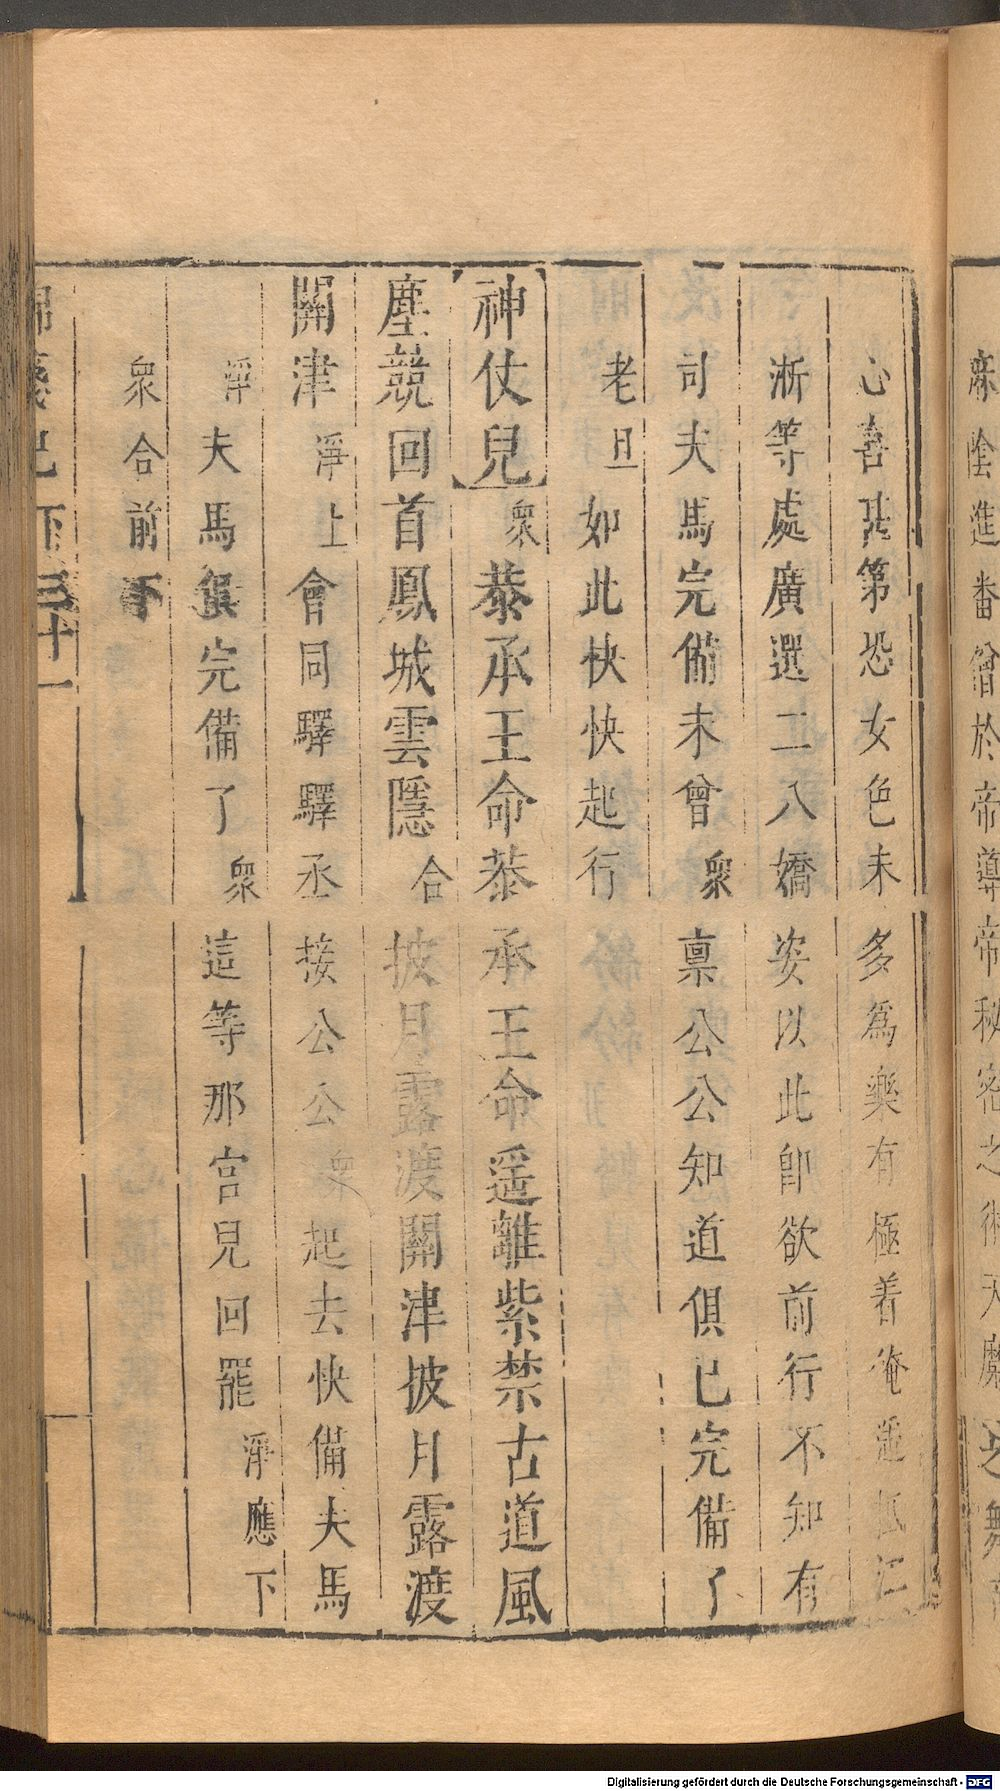 麻陰進番僧於帝導帝秘密之術天魔之舞
心喜甚第恐女色未多爲樂有極着俺逕抵江
淅等處廣選二八嬌姿以此卽欲前行不知有
司夫馬完備未曾衆禀公公知道俱已完備了
老旦如此快快起行
神仗兒衆恭承王命恭承王命遥離紫禁古道風
塵兢回首鳳城雲隱合披月露渡關津披月露渡
關津淨上會同驛驛丞接公公衆起去快備夫馬
淨夫馬俱完備了衆這等那官兒回罷淨應下
衆合前下
三十一
Digitalisierung gefördert durch die Deutsche Forschungsgemeinschaft - DFG